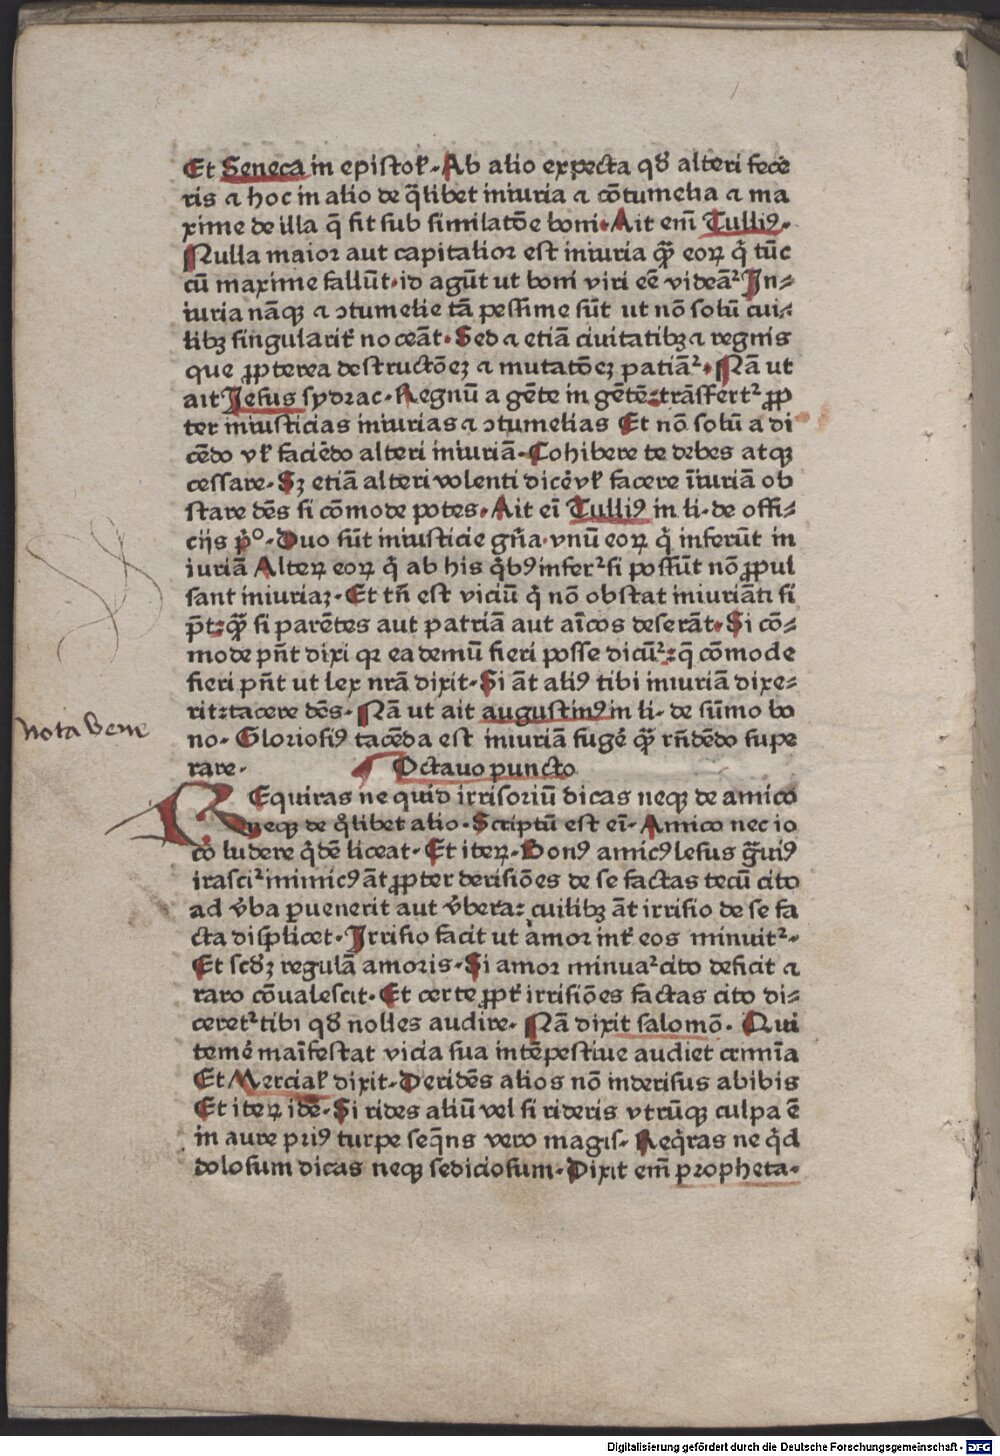 Et Seneca in epistoł. Ab alio expecta qđ alteri fece
ris ⁊ hoc in alio de q̃libet iniuria ⁊ cõtumelia ⁊ ma
xime de illa q̃ fit sub similatõe boni. Ait em̃ Tulliꝰ.
Nulla maior aut capitalior est iniuria q̃ȝ eoꝝ q̇ tũc
cũ maxime fallũt. id agũt ut boni viri eẽ videãt᷑ In⸗
iuria nãqꝫ ⁊ ↄtumelie tã pessime sũt ut nõ solũ cui⸗
libꝫ singularit̃ noceãt. Sed ⁊ etiã ciuitatibꝫ ⁊ regnis
que ꝓpterea destructõeȝ ⁊ mutatõeȝ patiãt᷑. Nã ut
ait Jesus sydrac. Regnũ a gẽte in gẽtẽ trãsfert᷑ ꝓp
ter iniusticias iniurias ⁊ ↄtumelias Et nõ solũ a di
cẽdo vł faciẽdo alteri iniuriã. Cohibere te debes atqꝫ
cessare. Sꝫ etiã alteri volenti dicẽ vł facere ĩiuriã ob
stare dẽs si cõmode potes. Ait eĩ Tulliꝰ in li. de offi⸗
cijs p̊º. Duo sũt iniusticie gñ̃a. vnũ eoꝝ q̇ inferũt in
iuriã Alteꝝ eoꝝ q̇ ab his q̇bꝰ infert᷑ si possũt nõ ꝓpul
sant iniuriaȝ. Et tñ est viciũ q̇ nõ obstat iniuriãti si
põt: q̃ȝ si parẽtes aut patriã aut aĩcos deserãt. Si cõ⸗
mode pñt dixi qꝛ ea demũ fieri posse dicũt᷑: q̃ cõmode
fieri pñt ut lex nrã dixit. Si ãt aliꝰ tibi iniuriã dixe⸗
rit: tacere dẽs. Nã ut ait augustinꝰ in li. de sũmo bo
no. Gloriosiꝰ tacẽda est iniuriã fugẽ q̃ȝ rñdẽdo supe
rare. Octauo puncto
REquiras ne quid irrisoriũ dicas neqꝫ de amico
neqꝫ de q̊libet alio. Scriptũ est eĩ. Amico nec io
co ludere q̇dẽ liceat. Et iteꝝ. Bonꝰ amicꝰ lesus g̃uiꝰ
irascit᷑ inimicꝰ ãt ꝓpter derisiões de se factas tecũ cito
ad v̉ba ꝑuenerit aut v̉bera: cuilibꝫ ãt irrisio de se fa
cta displicet. Irrisio facit ut amor int̃ eos minuit᷑.
Et scđȝ regulã amoris. Si amor minuat᷑ cito deficit ⁊
raro cõualescit. Et certe ꝓpt̃ irrisiões factas cito di⸗
ceret᷑ tibi qđ nolles audire. Nã dixit salomõ. Qui
temẽ maĩfestat vicia sua intẽpestiue audiet crimĩa
Et Merciał dixit. Deridẽs alios nõ inderisus abibis
Et iteꝝ idẽ. Si rides aliũ vel si rideris vtrũqꝫ culpa ẽ
in aure priꝰ turpe seq̃ns vero magis. Req̇ras ne q̇d
dolosum dicas neqꝫ sediciosum. Dixit em̃ propheta.
nota bene
Digitalisierung gefördert durch die Deutsche Forschungsgemeinschaft - DFG